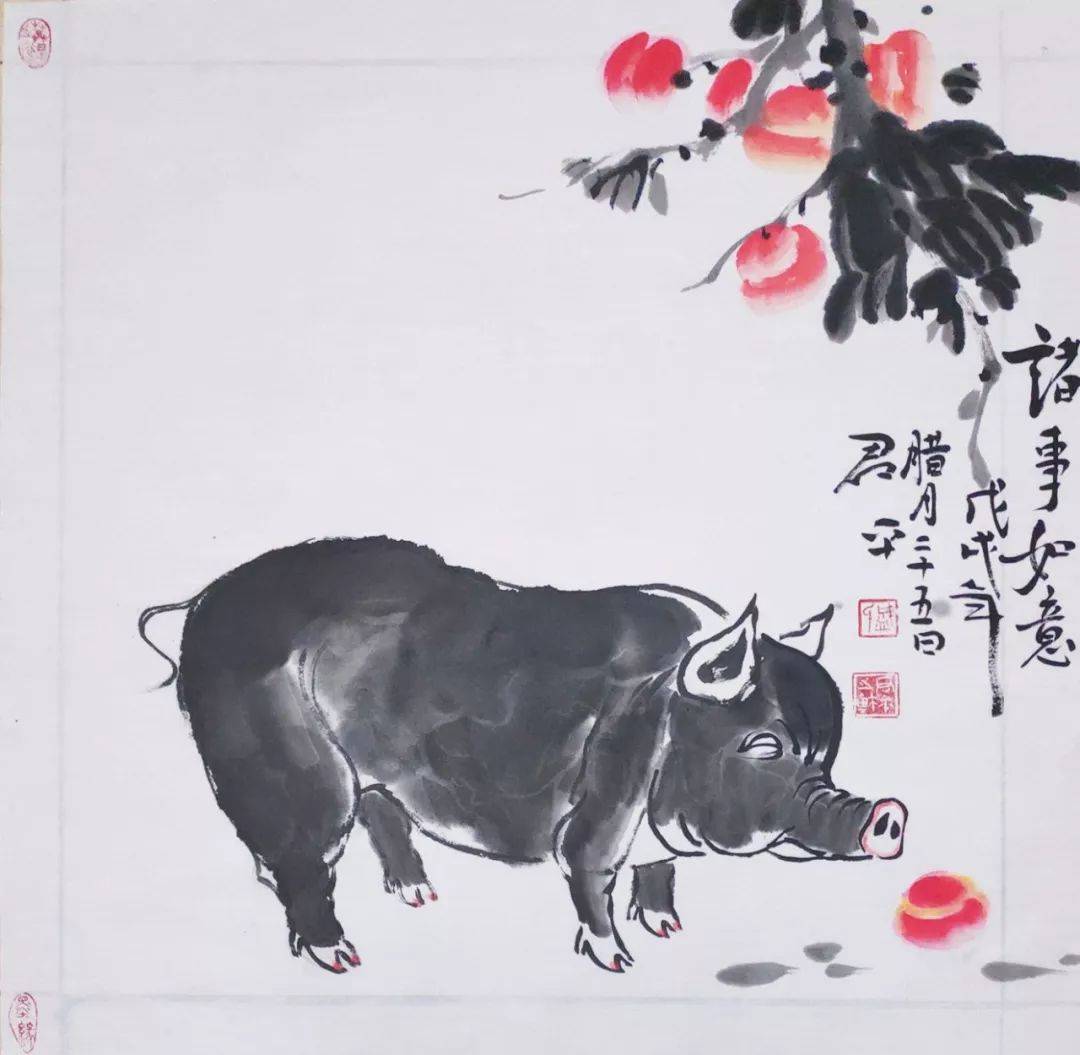 諸事如意
戊戌年
腊月二十五日
君平